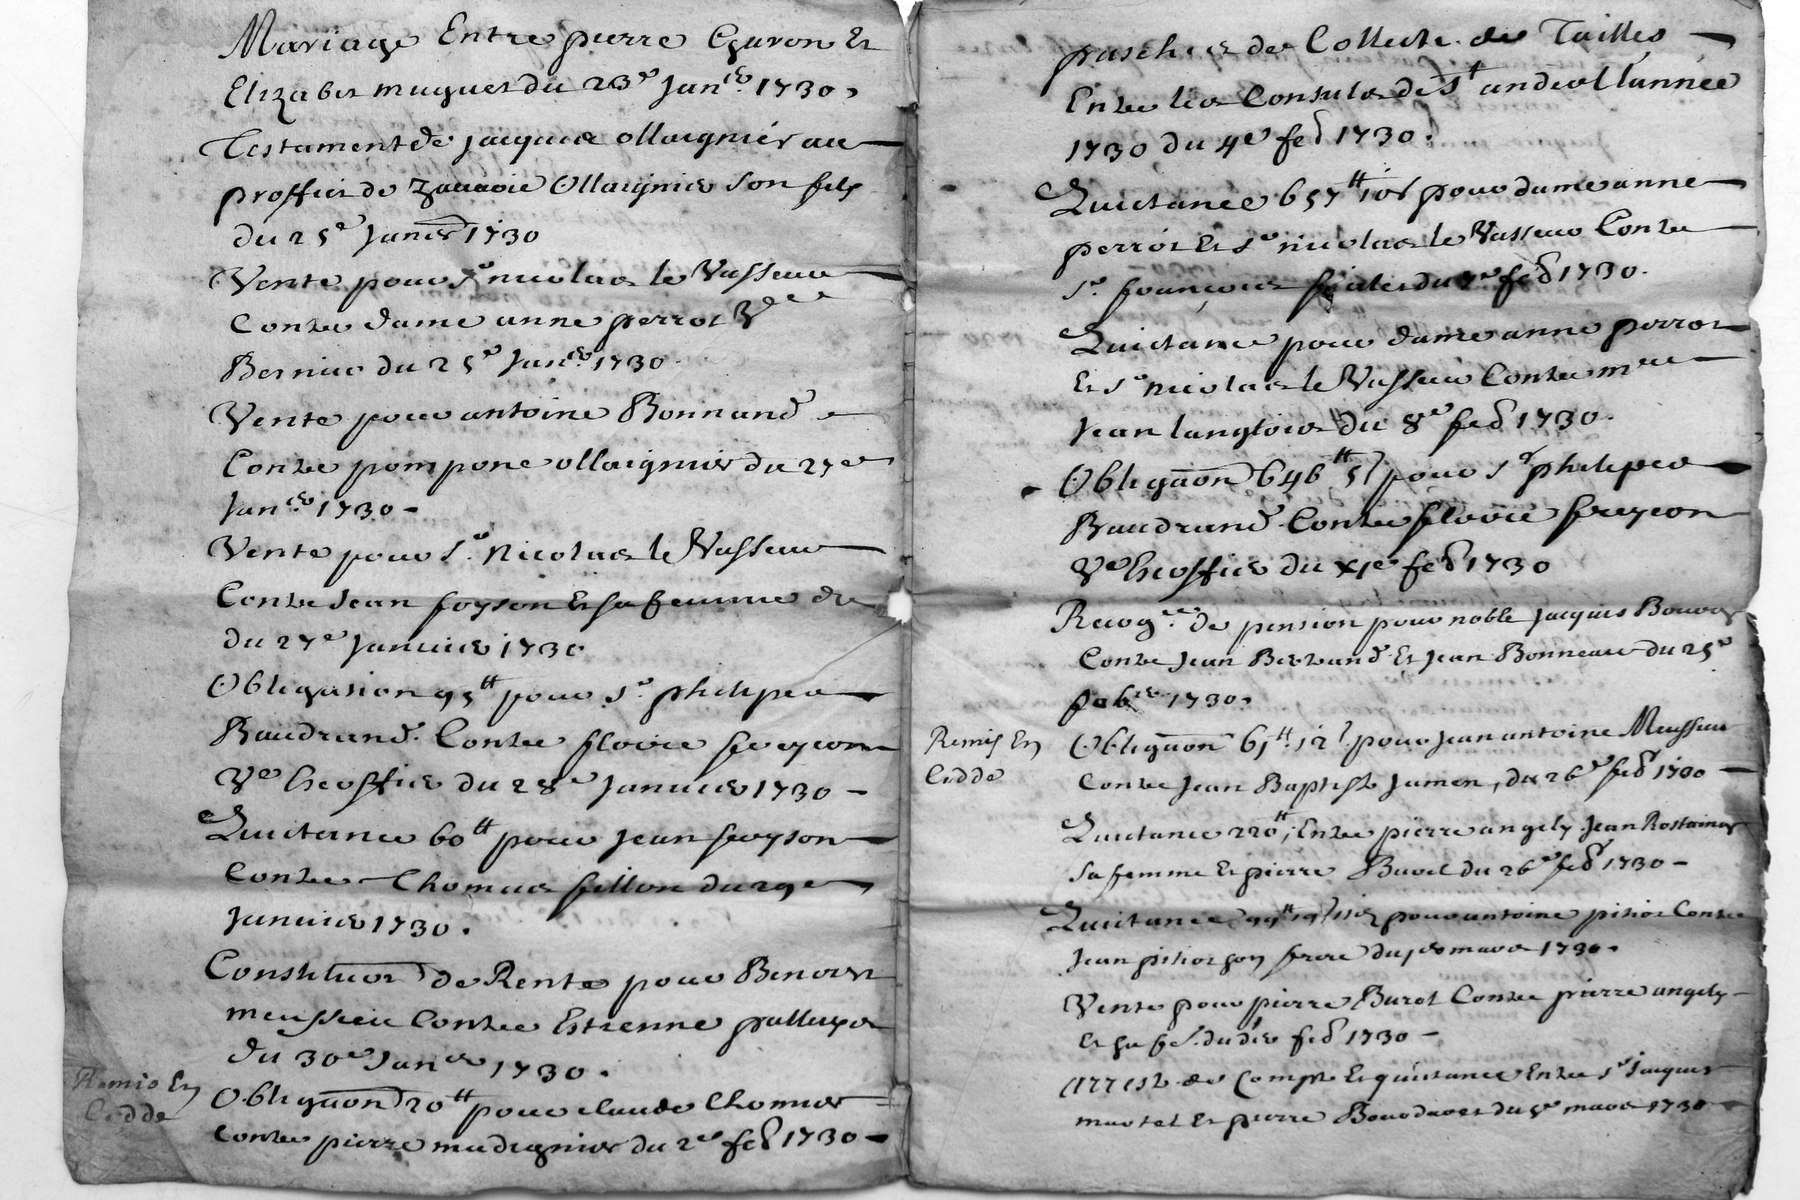 Mariage Entre pierre Guron Et
Elizabet muguet du 23e Janer 1730.
Testament de jacques ollaignier au
proffit de Ollaignier son fils
du 25e Janer 1730
Vente pour Sr nicolas le Vasseur
Contre dame anne perrot Vve
Berniue du 25e Janer 1730.
Vente pour antoine Bonnand
Contre pompone ollaignier du 27e
Janer 1730 -
Vente pour Sr. Nicolas le Vasseur
Contre Jean foyson Et sa femme du
du 27e Januier 1730
Obligation 95tt pour Sr philipes
Baudrand. Contre florie freycon
Ve heoffier du 28e Januier 1730 -
Quictance 60tt pour Jean freyson
Contre Thomas fillon du 29e
Januier 1730.
Constituon de Rente pour Benoist
meussieu Contre Estienne palluys
du 30e Janer 1730.
Remis En
Cedde
Obliguaon 20tt pour claude Thomier
contre pierre madignier du 2e feb 1730 -
pasches de Collecte des Tailles -
Entre les Consuls de St andeol l'année
1730 du 4e feb 1730.
Quictance 657tt 10s pour dame anne
perrot Et Sr nicolas le Vasseur Contre
Sr. françois du 7e feb 1730.
Quictance pour dame anne perrot
Et Sr nicolas le Vasseur Contre mre
Jean langlois du 8e feb 1730.
Obliguaon 646tt 5s pour Sr philipes
Baudrand. Contre floorie freycon
Ve heoffier du xje feb 1730
Recogce de pension pour noble Jacques
Contre Jean Bertrand Et Jean Bonneau du 25e
feber 1730.
Remis En
Cedde
Obliguaon 61tt. 12s. pour Jean antoine Meussieu
Contre Jean Baptiste Jamen, du 26e feb 1730 -
Quictance 220tt, Entre pierre angely Jean Rostaines
sa femme Et pierre Burel du 26e feb 1730 -
Quictance 99tt 19s pour antoine pitiot Contre
Jean pitiot son frere du jer mars 1730.
Vente pour pierre Burel Contre pierre angely -
Et sa fe. du der feb 1730 -
Arreste de Compte Et quictance Entre Sr Jacques
martel Et pierre Bourdaret du 5e mars 1730 -